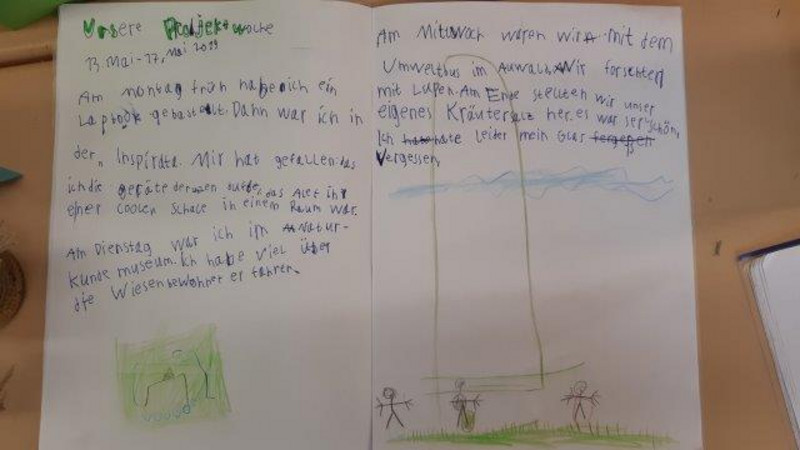 Unsere Projektwoche
13. Mai-17. Mai 2019
Am montag früh habe ich ein
Laptook gebastelt. Dahn war ich in
der, Inspirata. Mir hat gefallen. das
ich die geräte
einer coolen Schale in einem Raum war.
Am Dienstag war ich im Natur-
kunde museum. Ich habe viel über
die Wiesenbewohner er fahren.
Am Mitwoch waren wir mit dem
Umweltbus im Auwald. Wir forschten
mit Lupen. Am Ende stellten wir unser
eigenes Kräutersalz her. es war ser schön,
Ich hate leider mein Glas fergeßen
Vergessen,